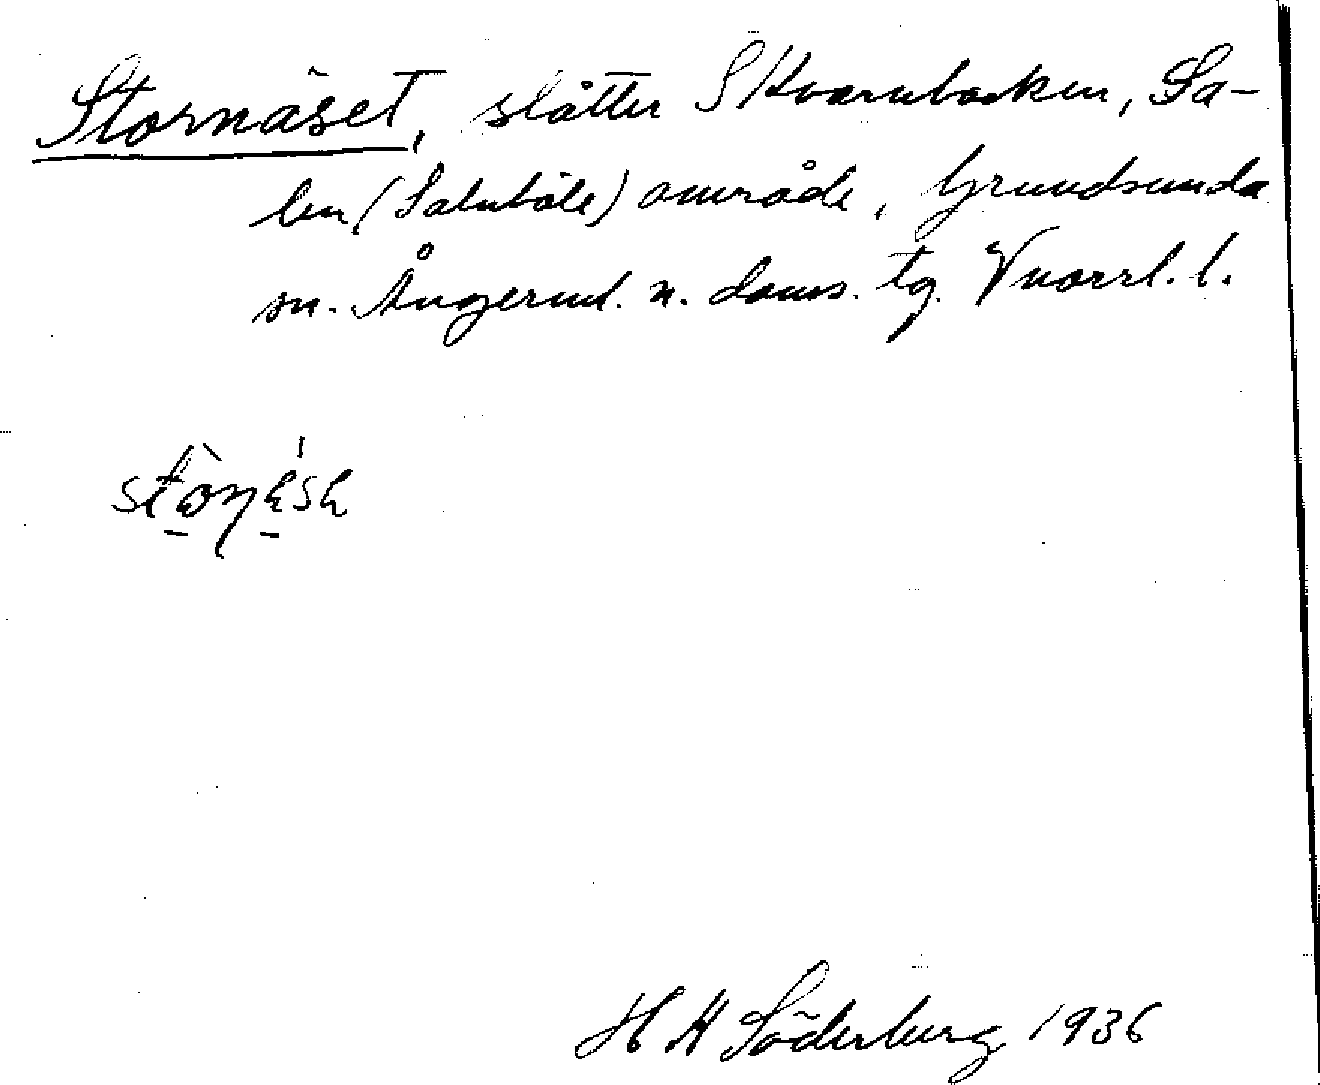 Stornäset, slåtter S Kvarnbacken, Sa-
len (Salubäle) område, Grundsunda
sn. Ångerml. n. doms. tg. Vnorrl. l.
stò̱ŋɛ̱́sɛ
H H Söderberg 1936